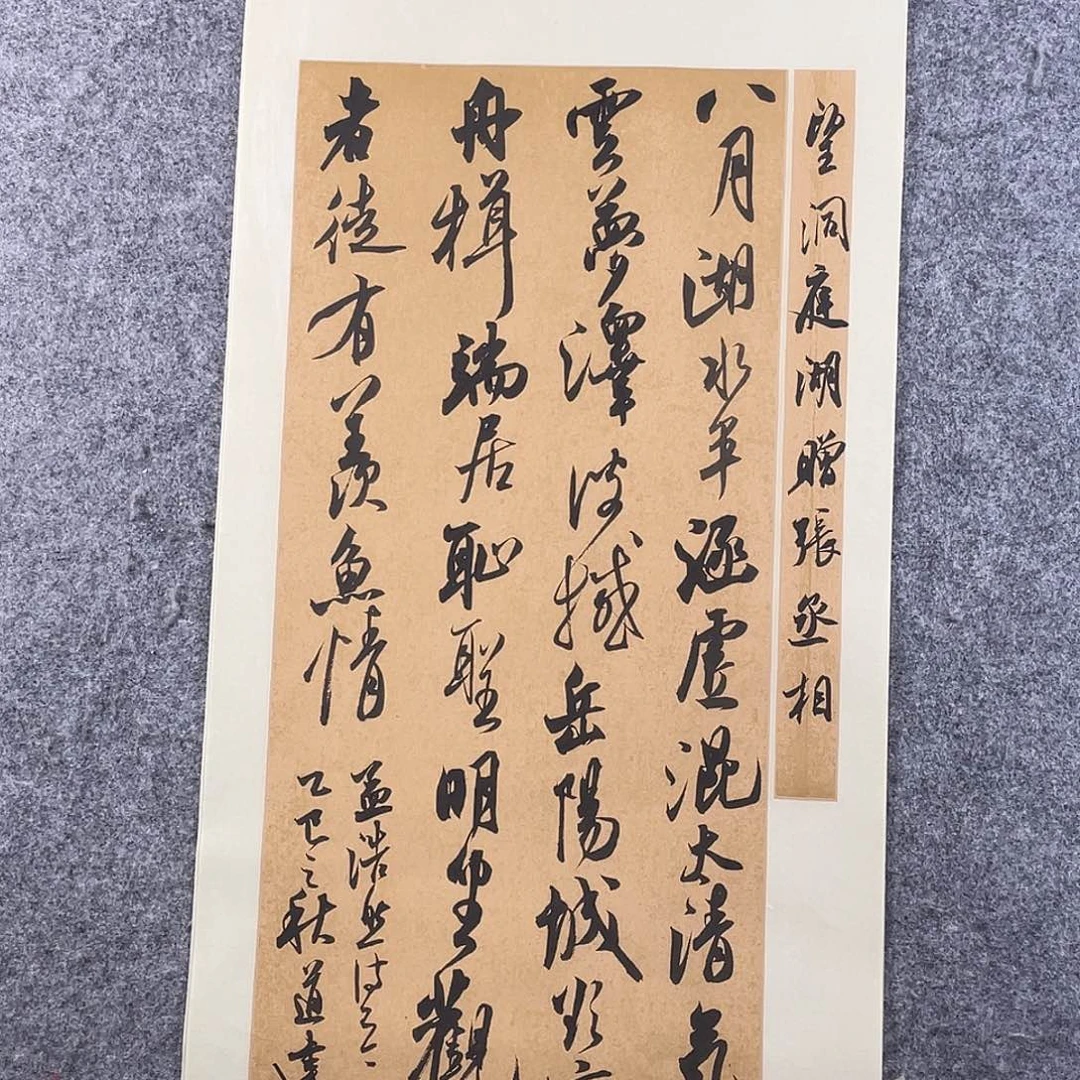 望洞庭湖贈張丞相
八月湖水平涵虛混太清氣
雲夢澤波撼岳陽城欲
舟楫端居恥聖明坐觀
者徒有羨魚情
孟浩然詩
乙巳之秋道達